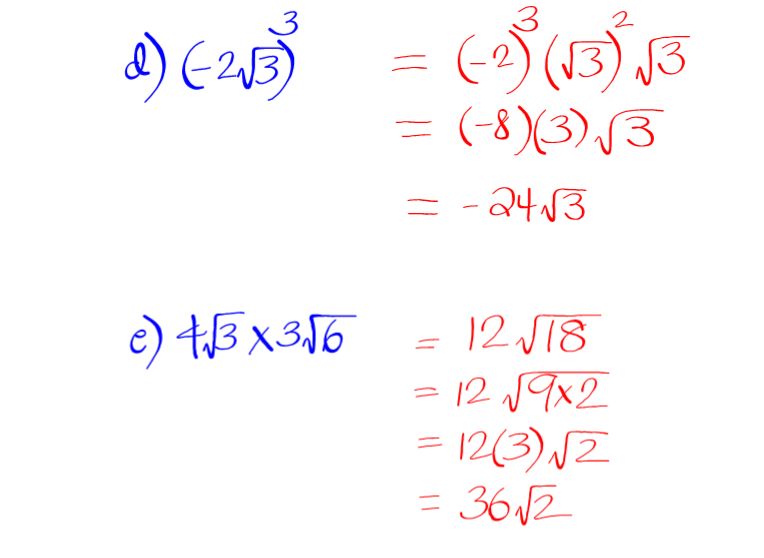 d) (-2√3)³ = (-2)³(√3)²√3
= (-8)(3)√3
= -24√3
e) 4√3 x 3√6 = 12√18
= 12√9x2
= 12(3)√2
= 36√2